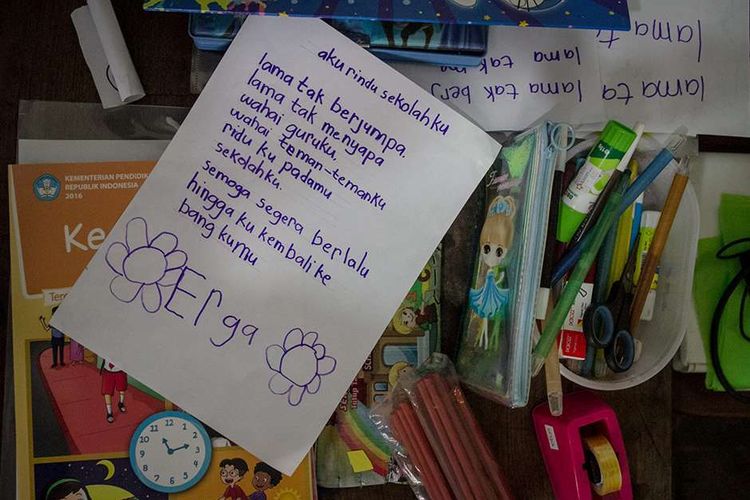 aku rindu sekolahku
lama tak berjumpa.
lama tak menyapa
wahai guruku,
wahai teman-temanku
ridu ku padamu
sekolahku.
semoga segera berlalu
hingga ku kembali ke
bang kumu
Erga
KEMENTERIAN PENDIDIK
REPUBLIK INDONESIA
2016
Ke
Te
lama t
lama tak m
lama ta
lama tak berj